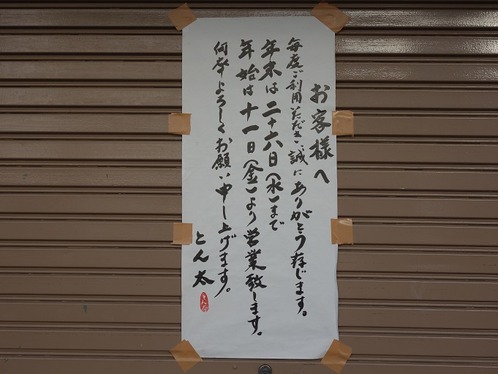 お客様へ
毎度ご利用いただき、誠にありがとう存じます。
年末は二十六日(水)まで
年始は十一日(金)より営業致します。
何卒よろしくお願い申し上げます。
とん太